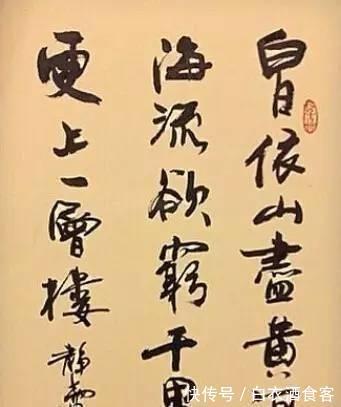 白日依山盡黄
海流欲窮千里
更上一層樓 靜
快传号/白衣酒食客